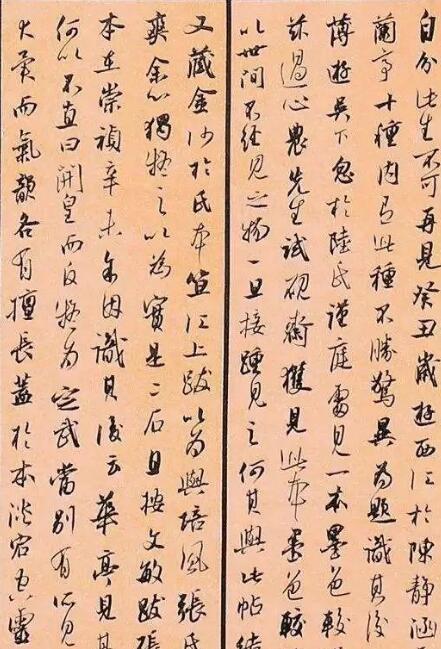 自分此生不可再見癸丑歲游西江於陳靜涵
蘭亭十種內有此種不勝驚異為題識其後
薄遊吳下忽於陸氏謹庭齋見一本墨色較
茲過心農先生試硯齋獲見此本墨色較
以世間不經見之物一旦接踵見之何其與此帖結
又藏金沙於氏本笪江上跋以為與培風張氏
爽余心獨賞之以為寶是二石且按文敏跋張
本在崇禎辛未余因識其後云華亭見其
何以不直曰開皇而反疑為定武當別有所見
大異而氣韻各有擅長蓋於本淡宕空靈